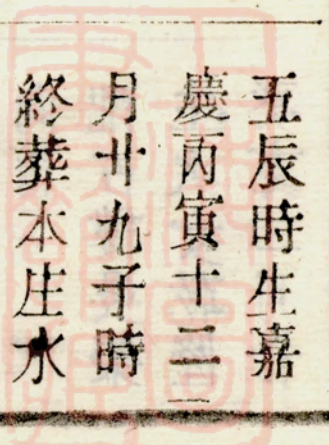 五辰時生嘉
慶丙寅十二
月廿九子時
終葬本庄水